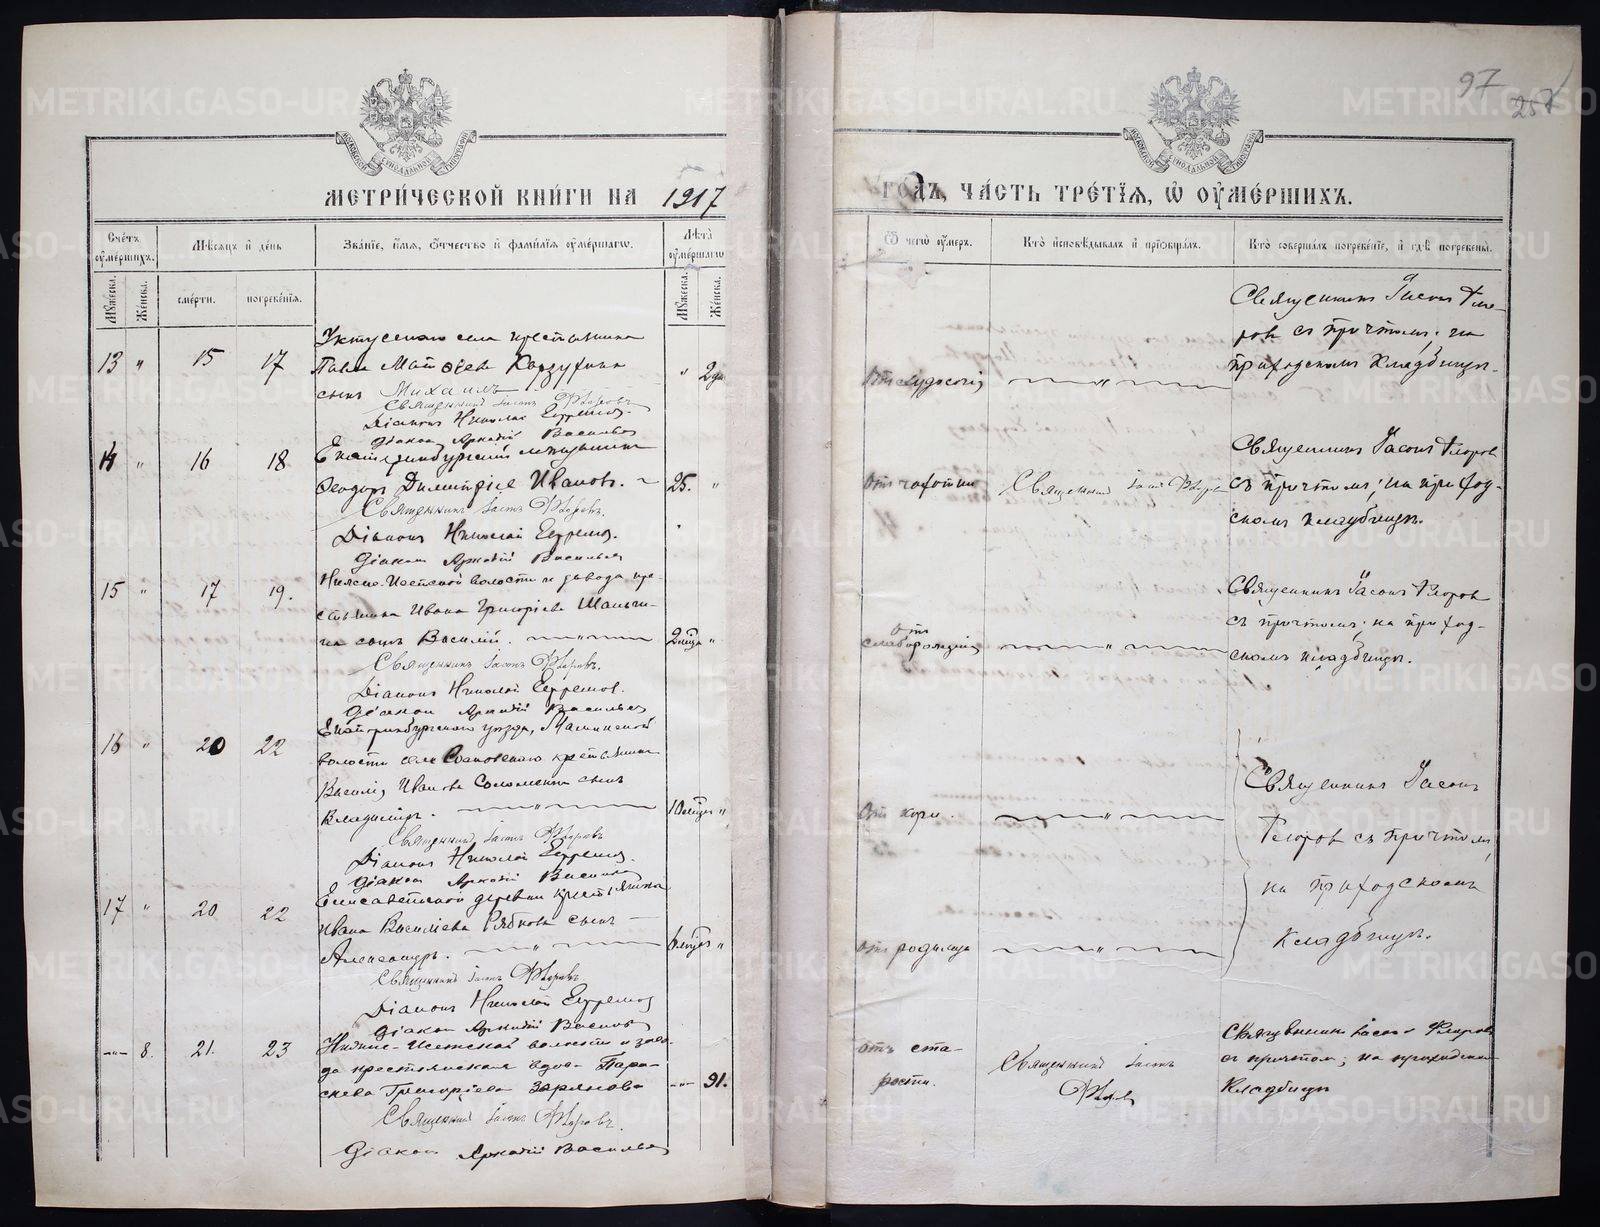 97
257
МЕТРИ́ЧЕСКОЙ КНИ́ГИ НА 1917
ГОДЪ, ЧА́СТЬ ТРЕ́ТЇѦ, Ѡ ОУМЕ́РШИХЪ.
Сче́тъ оуме́ршихъ.
Мѣ́сяцъ и҆ де́нь
Зва́нїе, и҆́мѧ, ѻ҆́тчество и҆ фами́лїѧ оуме́ршагѡ.
Лѣ́та оуме́ршагѡ
Мꙋ́жеска.
Же́нска.
сме́рти.
погребе́нїѧ.
Мꙋ́жеска.
Же́нска.
Ѿ чегѡ̀ оу́меръ.
Кто̀ и҆сповѣ́дывалъ и҆ прїѡбща́лъ.
Кто̀ соверша́лъ погребе́нїе, и҆ гдѣ̀ погребены̀.
13 " 15 17
Уктусскаго села крестьянина
Павла Матѳіева Корзухина
сынъ Михаилъ
" 2 дн
Священникъ Іасонъ Флоровъ
Діаконъ Николай Ефремов.
Діакон Аркадій Васильев
Отъ худосочія
Священникъ Іасонъ Флоров съ причтомъ; на
приходскомъ кладбищѣ.
14 " 16 18
Екатеринбургскій мѣщанинъ
Ѳеодоръ Димитріев Ивановъ.
25. "
Священникъ Іасонъ Флоровъ.
Діаконъ Николай Ефремов.
Діакон Аркадій Васильев
Отъ чахотки
Священникъ Іасонъ Флоров
Священникъ Іасонъ Флоров
съ причтомъ; на приход-
скомъ кладбищѣ.
15 " 17 19.
Нижне-Исетской волости и завода кре-
стьянина Ивана Григоріева
сынъ Василій.
2 мѣсяца "
Священникъ Іасонъ Флоровъ.
Діаконъ Николай Ефремов.
Діакон Аркадій Васильев
Отъ
слаборожденія
Священникъ Іасонъ Флоров
съ причтомъ; на приход-
скомъ кладбищѣ.
16 " 20 22
Екатеринбургскаго уѣзда,
волости села крестьянина
Василія Иванова сынъ
Владиміръ.
10 мѣсяцъ "
Священникъ Іасонъ Флоровъ
Діаконъ Николай Ефремов.
Діакон Аркадій Васильев
Отъ кори.
Священникъ Іасонъ
Флоров съ причтомъ,
на приходскомъ
кладбищѣ.
17 " 20 22
Елисаветской деревни крестьянина
Ивана Василіева Рябкова сынъ
Александръ.
6 мѣсяц "
Священникъ Іасонъ Флоровъ
Діаконъ Николай Ефремов
Діакон Аркадій Васильев
Отъ родимца
-"- 8. 21. 23
Нижне-Исетской волости и заво-
да крестьянская вдова Пара-
скева Григоріева Зарянова
-"- 91.
Священникъ Іасонъ Флоровъ.
Діакон Аркадій Васильев
отъ ста-
рости.
Священникъ Іасонъ
Флоров
Священникъ Іасонъ Флоровъ
съ причтом; на приходском
кладбищѣ